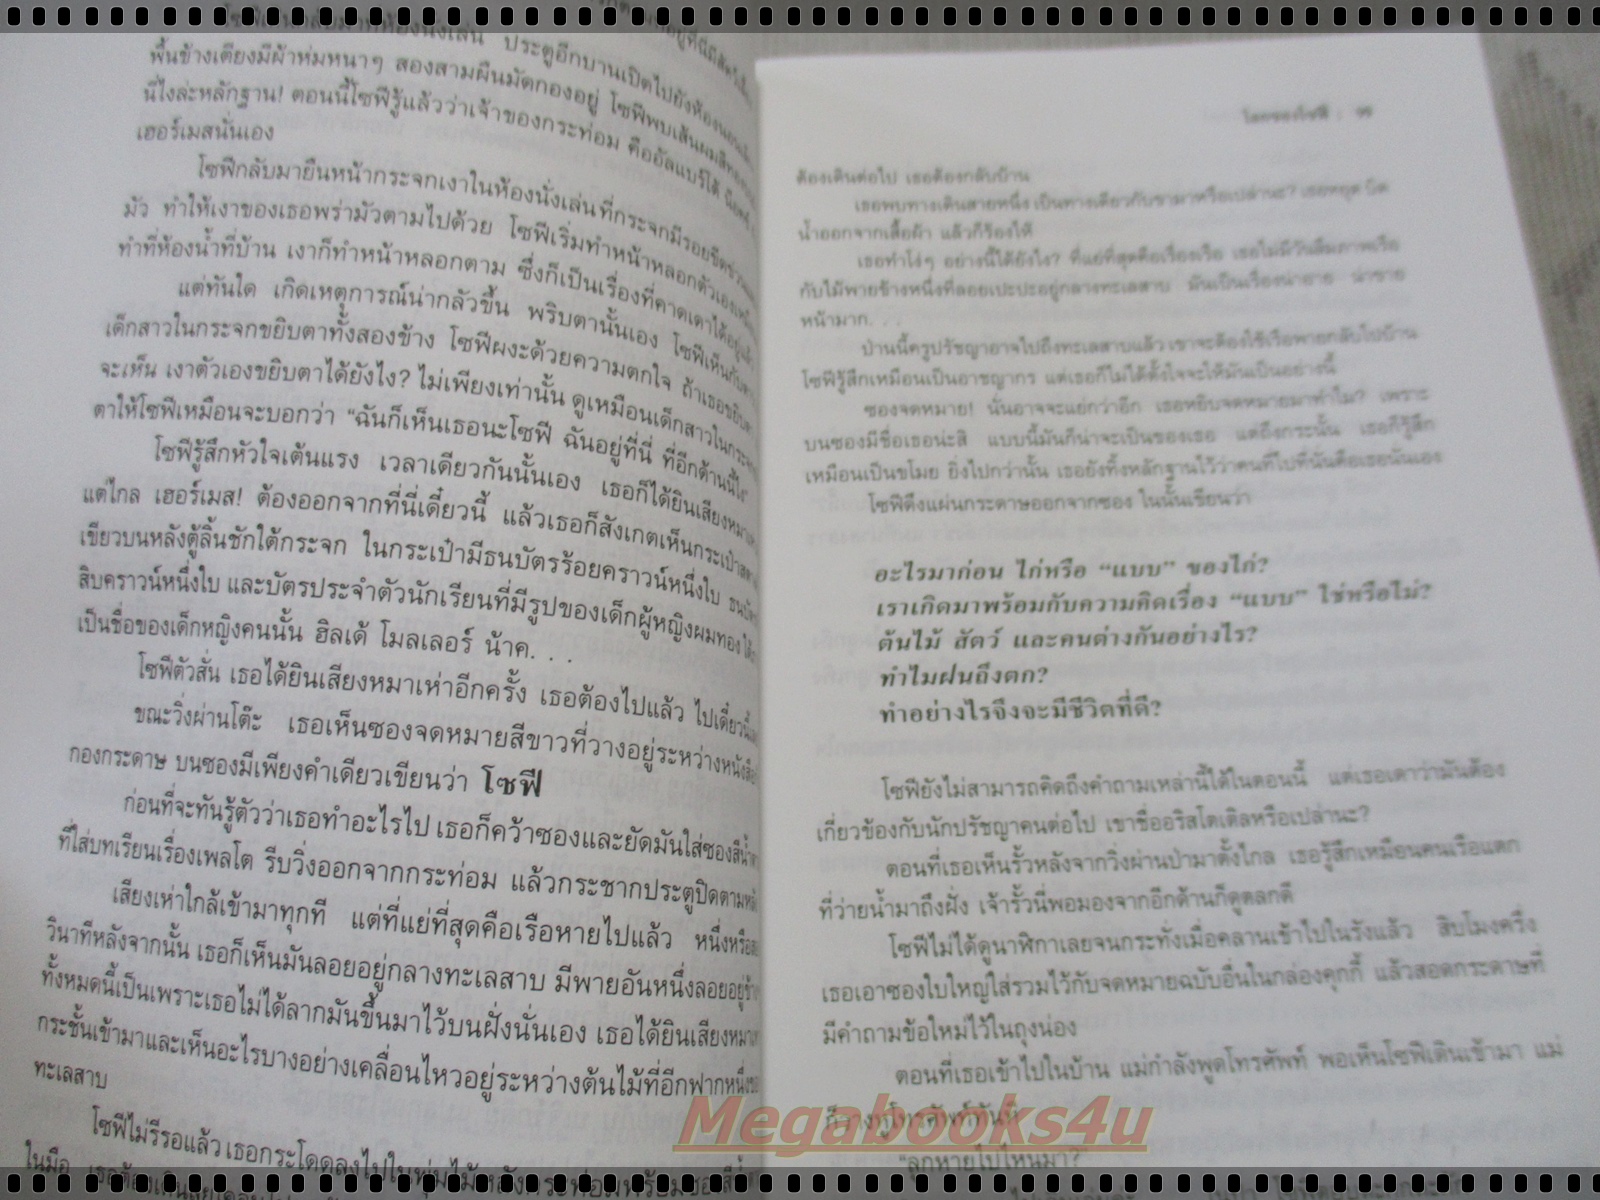 พื้นข้างเตียงมีผ้าห่มหนาๆ สองสามผืนมัดกองอยู่ โซฟีพบเส้นผมสีทอง
นี่ไงล่ะหลักฐาน! ตอนนี้โซฟีรู้แล้วว่าเจ้าของกระท่อม คืออัลแบร์โต้
เฮอร์เมสนั่นเอง
โซฟีกลับมายืนหน้ากระจกเงาในห้องนั่งเล่น ที่กระจกมีรอยขีดข่วน
มัว ทำให้เงาของเธอพร่ามัวตามไปด้วย โซฟีเริ่มทำหน้าหลอกตัวเองเหมือน
ทำที่ห้องน้ำที่บ้าน เงาก็ทำหน้าหลอกตาม ซึ่งก็เป็นเรื่องที่คาดเดาได้อยู่แล้ว
แต่ทันใด เกิดเหตุการณ์น่ากลัวขึ้น พริบตานั้นเอง โซฟีเห็นกับตา
เด็กสาวในกระจกขยิบตาทั้งสองข้าง โซฟีผงะด้วยความตกใจ ถ้าเธอขยิบตา
จะเห็น เงาตัวเองขยิบตาได้ยังไง? ไม่เพียงเท่านั้น ดูเหมือนเด็กสาวในกระจก
ตาให้โซฟีเหมือนจะบอกว่า “ฉันก็เห็นเธอนะโซฟี ฉันอยู่ที่นี่ ที่อีกด้านนี้ไง”
โซฟีรู้สึกหัวใจเต้นแรง เวลาเดียวกันนั้นเอง เธอก็ได้ยินเสียงหมา
แต่ไกล เฮอร์เมส! ต้องออกจากที่นี่เดี๋ยวนี้ แล้วเธอก็สังเกตเห็นกระเป๋า
เขียวบนหลังตู้ลิ้นชักใต้กระจก ในกระเป๋ามีธนบัตรร้อยคราวน์หนึ่งใบ
สิบคราวน์หนึ่งใบ และบัตรประจำตัวนักเรียนที่มีรูปของเด็กผู้หญิงผมทอง
เป็นชื่อของเด็กหญิงคนนั้น ฮิลเด้ โมลเลอร์ น้าค. . .
โซฟีตัวสั่น เธอได้ยินเสียงหมาเห่าอีกครั้ง เธอต้องไปแล้ว ไปเดี๋ยวนี้
ขณะวิ่งผ่านโต๊ะ เธอเห็นซองจดหมายสีขาวที่วางอยู่ระหว่างหนังสือ
กองกระดาษ บนซองมีเพียงคำเดียวเขียนว่า โซฟี
ก่อนที่จะทันรู้ตัวว่าเธอทำอะไรไป เธอก็คว้าซองและยัดมันใส่ซองสีน้ำ
ที่ใส่บทเรียนเรื่องเพลโต รีบวิ่งออกจากกระท่อม แล้วกระชากประตูปิดตามหลัง
เสียงเห่าใกล้เข้ามาทุกที แต่ที่แย่ที่สุดคือเรือหายไปแล้ว หนึ่งหรือ
วินาทีหลังจากนั้น เธอก็เห็นมันลอยอยู่กลางทะเลสาบ มีพายอันหนึ่งลอยอยู่ข้าง
ทั้งหมดนี้เป็นเพราะเธอไม่ได้ลากมันขึ้นมาไว้บนฝั่งนั่นเอง เธอได้ยินเสียงหมา
กระชั้นเข้ามาและเห็นอะไรบางอย่างเคลื่อนไหวอยู่ระหว่างต้นไม้ที่อีกฟากหนึ่ง
ทะเลสาบ
โซฟีไม่รีรอแล้ว เธอกระโดดลงไปในพุ่มไม้หลังกระท่อมพร้อมซอง
โลกของโซฟี : ๙๙
ต้องเดินต่อไป เธอต้องกลับบ้าน
เธอพบทางเดินสายหนึ่ง เป็นทางเดียวกับขามาหรือเปล่านะ? เธอหยุด บิด
น้ำออกจากเสื้อผ้า แล้วก็ร้องไห้
เธอทำโง่ๆ อย่างนี้ได้ยังไง? ที่แย่ที่สุดคือเรื่องเรือ เธอไม่มีวันลืมภาพเรือ
กับไม้พายข้างหนึ่งที่ลอยเปะปะอยู่กลางทะเลสาบ มันเป็นเรื่องน่าอาย น่าขาย
หน้ามาก. . .
ป่านนี้ครูปรัชญาอาจไปถึงทะเลสาบแล้ว เขาจะต้องใช้เรือพายกลับไปบ้าน
โซฟีรู้สึกเหมือนเป็นอาชญากร แต่เธอก็ไม่ได้ตั้งใจจะให้มันเป็นอย่างนี้
ซองจดหมาย! นั่นอาจจะแย่กว่าอีก เธอหยิบจดหมายมาทำไม? เพราะ
บนซองมีชื่อเธอน่ะสิ แบบนี้มันก็น่าจะเป็นของเธอ แต่ถึงกระนั้น เธอก็รู้สึก
เหมือนเป็นขโมย ยิ่งไปกว่านั้น เธอยังทิ้งหลักฐานไว้ว่าคนที่ไปที่นั่นคือเธอนั่นเอง
โซฟีดึงแผ่นกระดาษออกจากซอง ในนั้นเขียนว่า
อะไรมาก่อน ไก่หรือ “แบบ” ของไก่?
เราเกิดมาพร้อมกับความคิดเรื่อง “แบบ” ใช่หรือไม่?
ต้นไม้ สัตว์ และคนต่างกันอย่างไร?
ทำไมฝนถึงตก?
ทำอย่างไรจึงจะมีชีวิตที่ดี?
โซฟียังไม่สามารถคิดถึงคำถามเหล่านี้ได้ในตอนนี้ แต่เธอเดาว่ามันต้อง
เกี่ยวข้องกับนักปรัชญาคนต่อไป เขาชื่ออริสโตเติลหรือเปล่านะ?
ตอนที่เธอเห็นรั้วหลังจากวิ่งผ่านป่ามาตั้งไกล เธอรู้สึกเหมือนคนเรือแตก
ที่ว่ายน้ำมาถึงฝั่ง เจ้ารั้วนี่พอมองจากอีกด้านก็ดูตลกดี
โซฟีไม่ได้ดูนาฬิกาเลยจนกระทั่งเมื่อคลานเข้าไปในรังแล้ว สิบโมงครึ่ง
เธอเอาซองใบใหญ่ใส่รวมไว้กับจดหมายฉบับอื่นในกล่องคุกกี้ แล้วสอดกระดาษที่
มีคำถามข้อใหม่ไว้ในถุงน่อง
ตอนที่เธอเข้าไปในบ้าน แม่กำลังพูดโทรศัพท์ พอเห็นโซฟีเดินเข้ามา แม่
ก็วางหูโทรศัพท์ทันที
“ลูกหายไปไหนมา?”
Megabooks4u